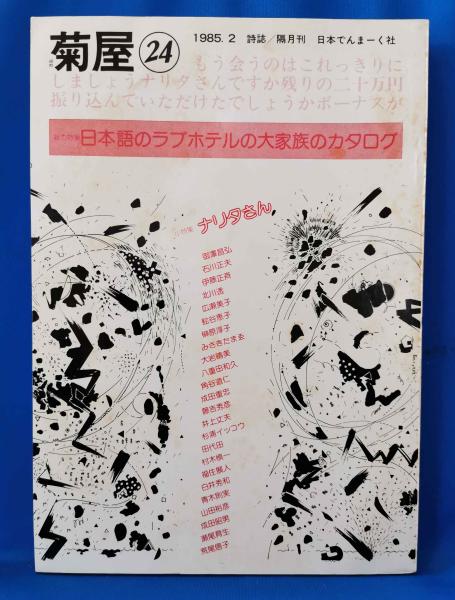 菊屋 24
1985.2 詩誌/隔月刊 日本でんまーく社
もう会うのはこれっきりに
しましょうナリタさんですか残りの二十万円
振り込んでいただけたでしょうかボーナスが
総力特集 日本語のラブホテルの大家族のカタログ
小特集 ナリタさん
石川正夫
伊藤正斉
北川透
広瀬美子
粒谷恵子
榊原淳子
みききたまゑ
大岩晴美
八重田和久
角谷道仁
成田重忠
磐吉秀彦
井上丈夫
杉浦イッコウ
田代田
村木慎一
福住展人
臼井秀和
青木則実
山田裕彦
成田昭男
瀬尾育生
荒尾信子